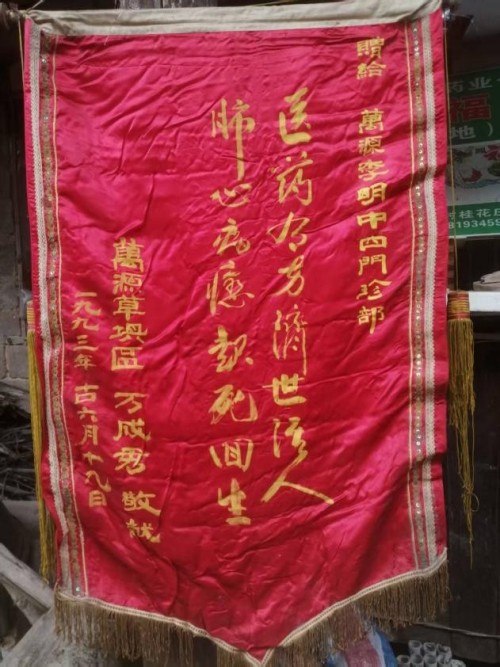 贈給 萬源李明中四門珍部
医药有方濟世活人
肺心病癒起死回生
萬源草埧區 万成君 敬献
一九九三年 古六月十九日
药业
福
地）
村桂花
8193459